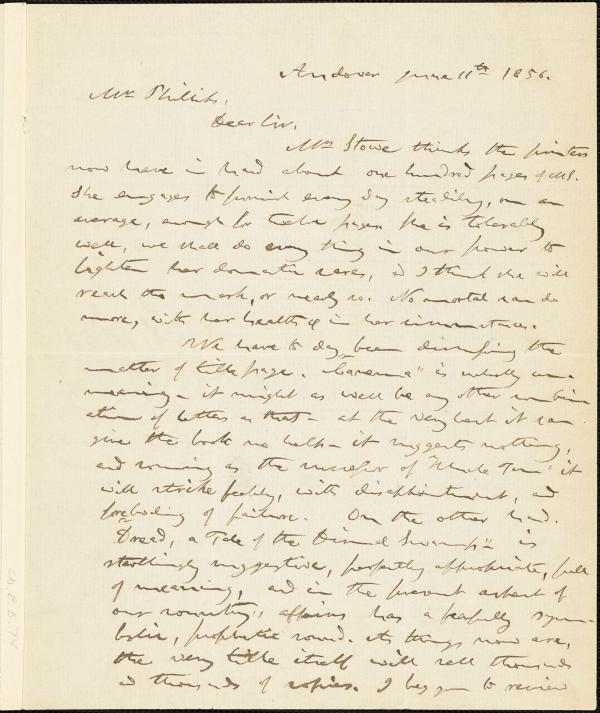 Andover June 11th 1856.
Mr. Phillips,
Dear Sir,
Mrs Stowe thinks the printers
now have in hand about one hundred pages of MS.
She engages to furnish every day steadily, on an
average, enough for twelve pages. She is tolerably
well, we shall do every thing in our power to
lighten her domestic cares, & I think she will
reach the mark, or nearly so. No mortal can do
more, with her health & in her circumstances.
We have to day been discussing the
matter of title page. "Canema" is wholly un-
meaning - it might as well be any other combin-
ation of letters as that - at the very best it can
give the book no help - it suggests nothing,
and coming as the successor of "Uncle Tom" it
will strike feebly, with disappointment, and
foreboding of failure. On the other hand,
"Dred, a Tale of the Dismal Swamp" is
startlingly suggestive, perfectly appropriate, full
of meaning, and in the present aspect of
our country's affairs has a fearfully sym-
bolic, prophetic sound. As things now are,
the very title itself will sell thousands
& thousands of copies. I beg you to review